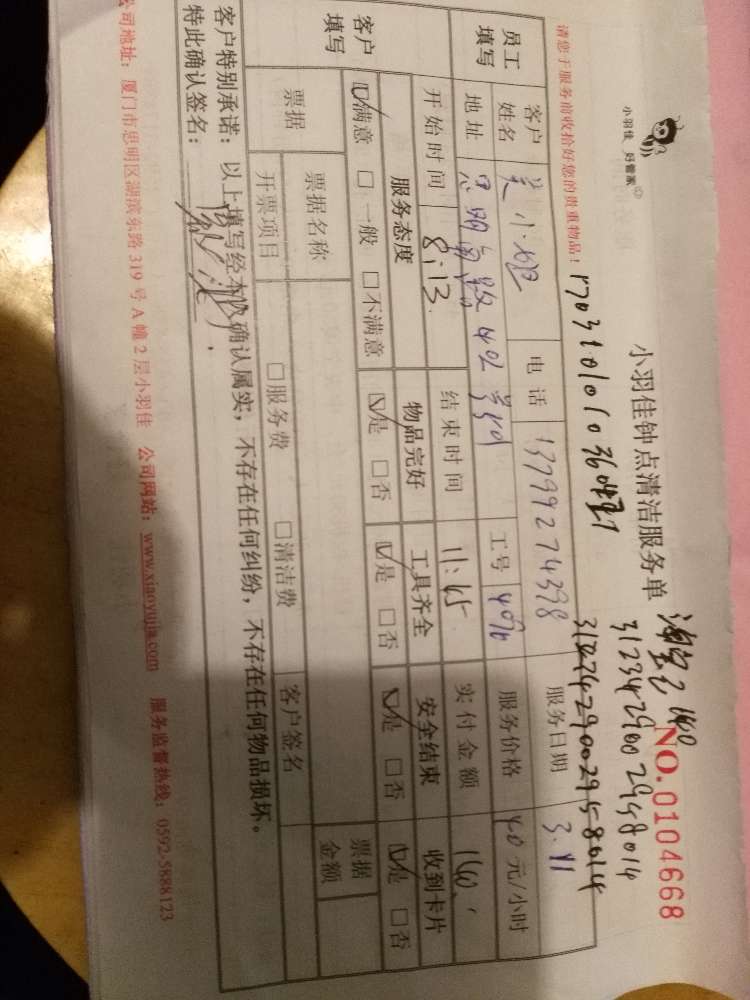 小羽佳 好管家
小羽佳钟点清洁服务单
NO.0104668
3123429002958014
请您于服务前收拾好您的贵重物品！
员工填写
客户姓名 小姐 电话 13799274398 服务日期 3.11
地址 工号 服务价格 40元/小时
客户填写
开始时间 8:13 结束时间 11:45 实付金额 140.
服务态度 物品完好 工具齐全 安全结束 收到卡片
☑满意 □一般 □不满意 ☑是 □否 ☑是 □否 ☑是 □否 ☑是 □否
票据 票据名称 客户签名 票据金额
开票项目 □服务费 □清洁费
客户特别承诺：以上填写经本人确认属实，不存在任何纠纷，不存在任何物品损坏。
特此确认签名：
公司地址：厦门市思明区湖滨东路319号A幢2层小羽佳 公司网站：www.xiaoyujia.com 服务监督热线：0592-5888123